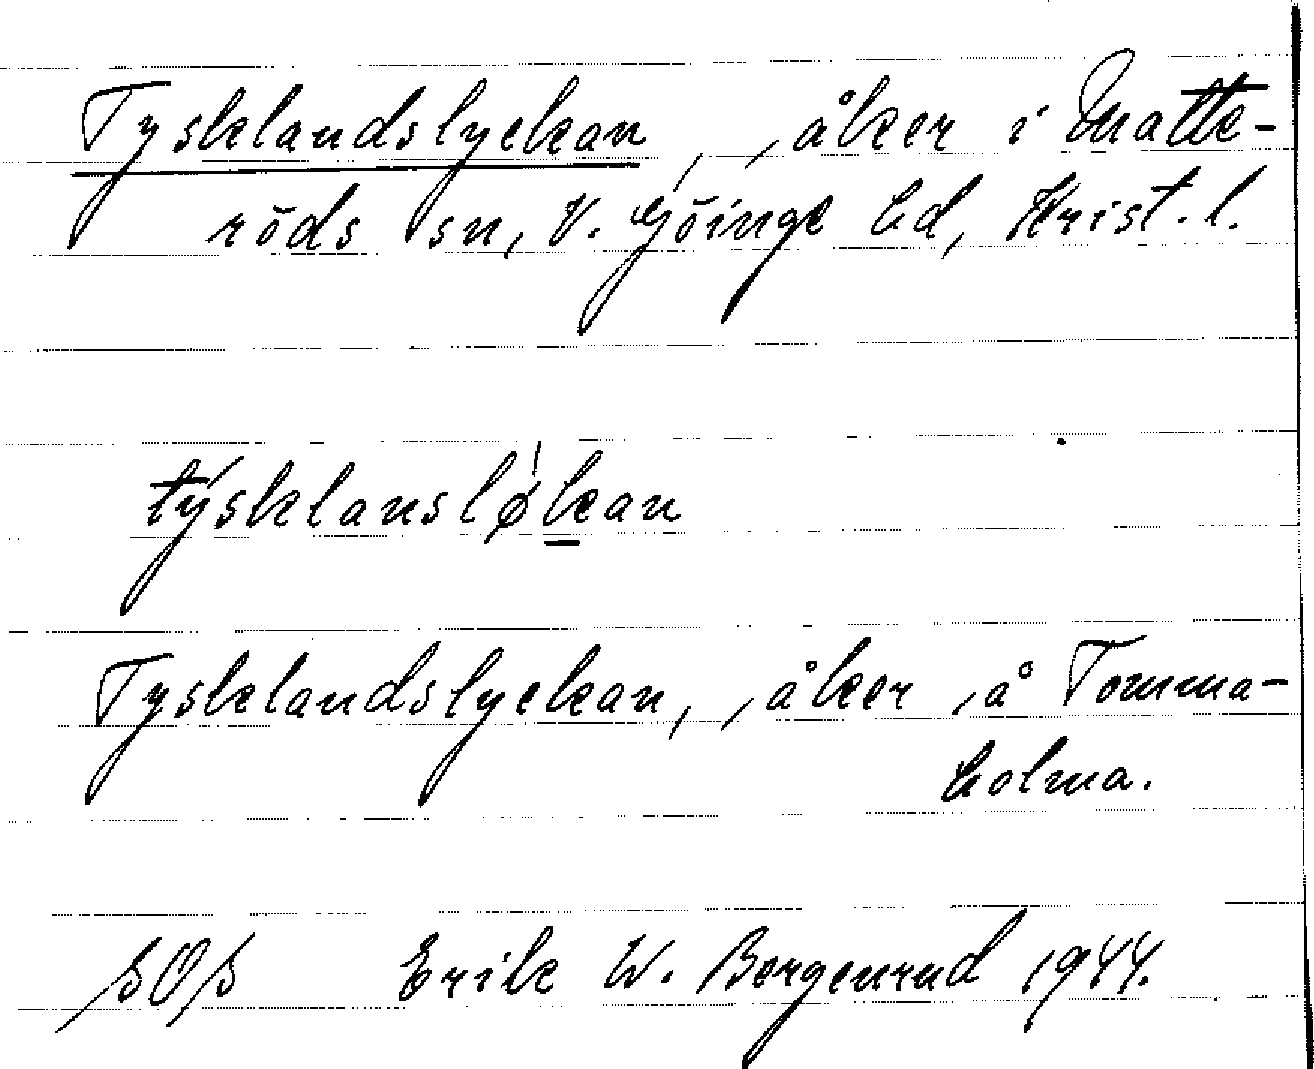 Tysklandslyckan, åker i Matte-
röds sn, V. Göinge hd, Krist. l.
týsklansløkan
Tysklandslyckan, åker å Tomma-
holma.
SOS Erik W. Borgenrud 1944.